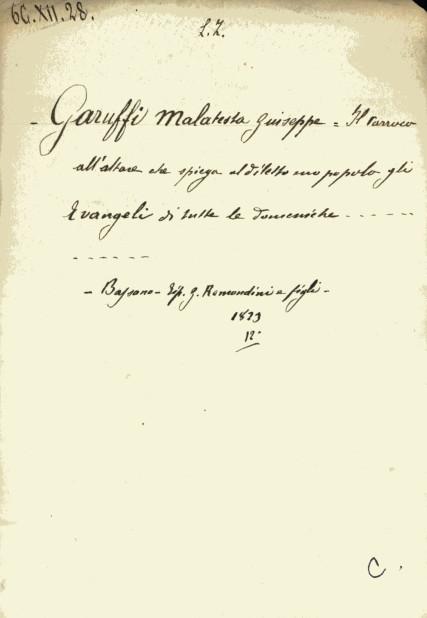 6C.XII.28.
L.Z.
- Garuffi Malatesta Giuseppe = Il Parroco
all'altare che spiega al diletto suo popolo gli
Evangeli di tutte le domeniche - - - - -
- - - - - -
- Bassano - Tip. G. Remondini e figli -
1823
12°
C.